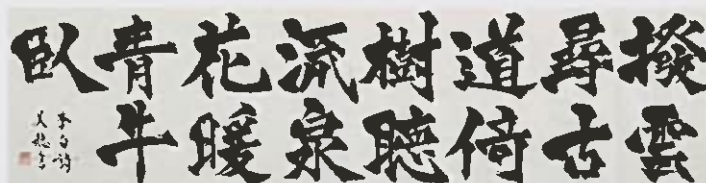 撥雲
尋古
道倚
樹聽
流泉
花暖
青牛
臥
李白詩